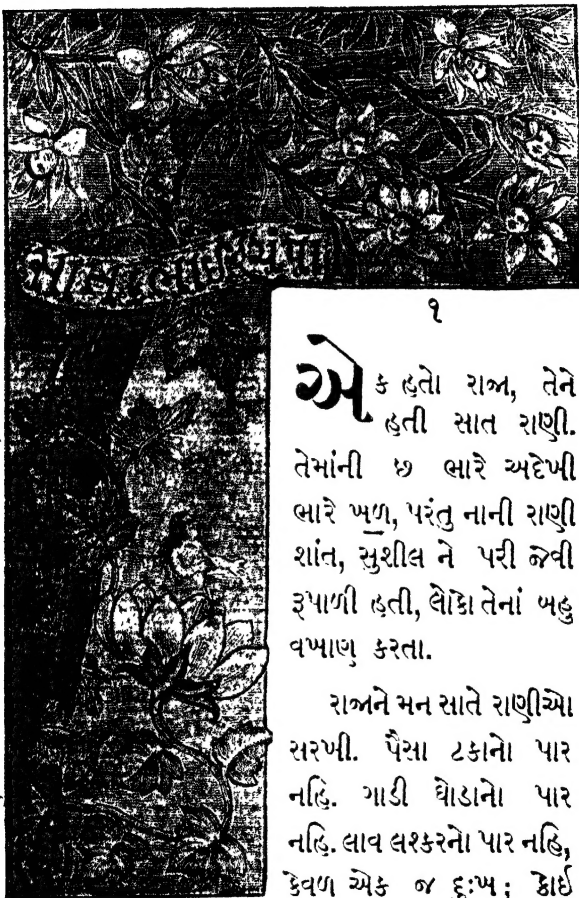 સાત ભાઇ ચંપા
૧
એક હતો રાજા, તેને
હતી સાત રાણી.
તેમાંની છ ભારે અદેખી
ભારે ખળ, પરંતુ નાની રાણી
શાંત, સુશીલ ને પરી જેવી
રૂપાળી હતી, લોકો તેનાં બહુ
વખાણ કરતા.
રાજાને મન સાતે રાણીઓ
સરખી. પૈસા ટકાનો પાર
નહિ. ગાડી ઘોડાનો પાર
નહિ. લાવ લશ્કરનો પાર નહિ,
કેવળ એક જ દુઃખ; કોઇ